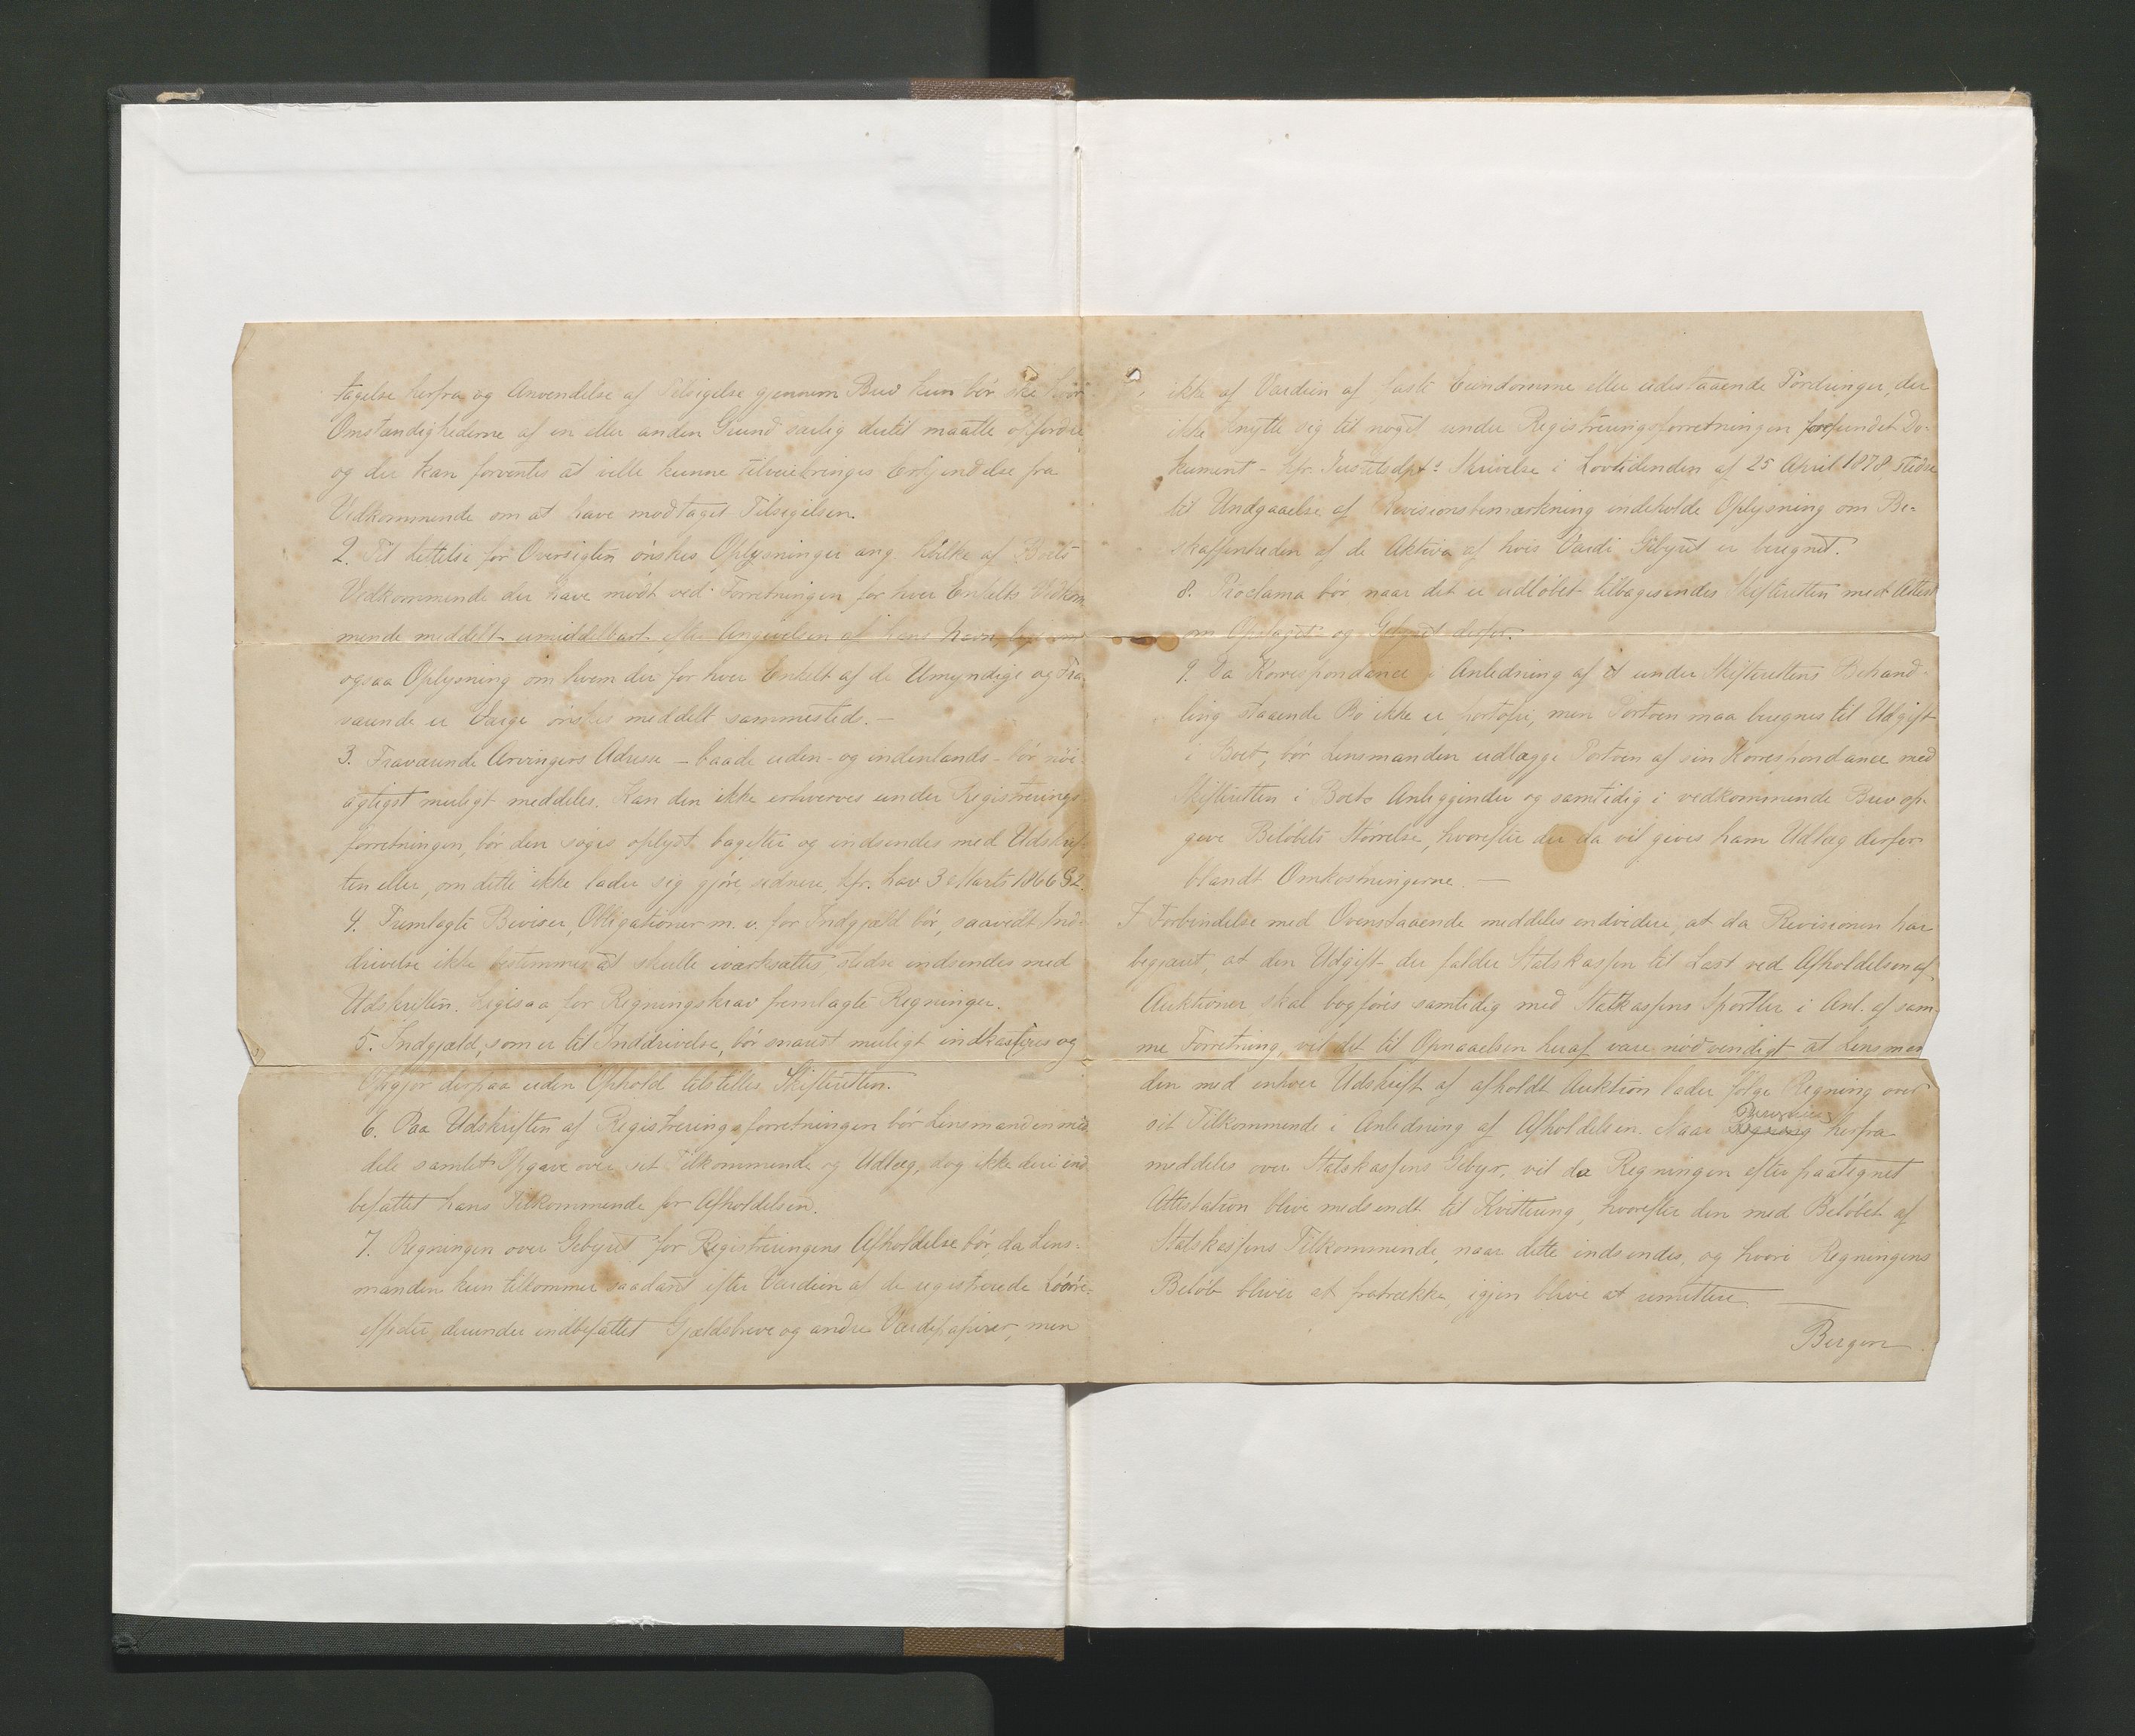 tagelse herfra og Anvendelse af Tilsigelse gjennem Brev kun bør ske hvor
Omstændighederne af en eller anden Grund særlig dertil maatte opfordre
og der kan forventes at ville kunne tilveiebringes Erkjendelse fra
Vedkommende om at have modtaget Tilsigelsen.
2. Til Lettelse for Oversigten ønskes Oplysninger ang. hvilke af Boets
Vedkommende der have mødt ved Forretningen for hver Enkelts Vedkom
mende meddelt umiddelbart efter Angivelsen af hans Navn, ligesom
ogsaa Oplysning om hvem der for hver Enkelt af de Umyndige og Fra-
værende er Værge ønskes meddelt sammesteds. -
3. Fraværende Arvingers Adresse - baade uden- og indenlands - bør nøi-
agtigst muligt meddeles. Kan den ikke erhverves under Registrerings-
forretningen, bør den søges oplyst bagefter og indsendes med Udskrif-
ten eller, om dette ikke lader sig gjøre, sednere, kfr. Lov 3 Marts 1866 § 2.
4. Fremlagte Beviser, Obligationer m. v. for Indgjæld bør, saavidt Ind-
drivelse ikke bestemmes at skulle iværksættes stedse indsendes med
Udskriften. Ligesaa for Regningskrav fremlagte Regninger.
5. Indgjæld, som er til Inddrivelse, bør snarest muligt indkasseres og
Opgjør derpaa uden Ophold tilstilles Skifteretten.
6. Paa Udskriften af Registreringsforretningen bør Lensmanden med
dele samlet Opgave over sit Tilkommende og Udlæg, dog ikke deri ind
befattet hans Tilkommende for Afholdelsen.
7. Regningen over Gebyret for Registreringens Afholdelse bør, da Lens-
manden kun tilkommer saadant efter Værdien af de registrerede Løsøre-
effecter, derunder indbefattet Gjældsbreve og andre Værdipapirer, men
ikke af Værdien af faste Eiendomme eller udestaaende Fordringer, der
ikke knytte sig til noget under Registreringsforretningen forefundet Do-
kument - kfr. Justitsdpts Skrivelse i Lovtidenden af 25 April 1878, stedse
til Undgaaelse af Revisionsbemærkning indeholde Oplysning om Be-
skaffenheden af de Aktiva af hvis Værdi Gebyret er beregnet.
8. Proclama bør naar det er udløbet tilbagesendes Skifteretten med Attest
om Opslaget og Gebyret derfor.
9. Da Korrespondance i Anledning af et under Skifterettens Behand-
ling staaende Bo ikke er portofri, men Portoen maa beregnes til Udgift
i Boet, bør Lensmanden udlægge Portoen af sin Korrespondance med
Skifteretten i Boets Anliggender og samtidig i vedkommende Brev op-
give Beløbets Størrelse, hvorefter der da vil gives ham Udlæg derfor
blandt Omkostningerne. -
I Forbindelse med Ovenstaaende meddeles endvidere, at da Revisionen har
begjært, at den Udgift der falder Statskassen til Last ved Afholdelsen af
Auktioner skal bogføres samtidig med Statkassens Sportler i Anl. af sam-
me Forretning, vil det til Opnaaelsen heraf være nødvendigt at Lensman
den med enhver Udskrift af afholdt Auktion lader følge Regning over
sit Tilkommende i Anledning af Afholdelsen. Naar Regning herfra
meddeles over Statskassens Gebyr, vil da Regningen efter paategnet
Attestation blive medsendt til Kvittering, hvorefter den med Beløbet af
Statskassens Tilkommende, naar dette indsendes, og hvori Regningens
Beløb bliver at fratrække, igjen blive at remittere. -
Bergen